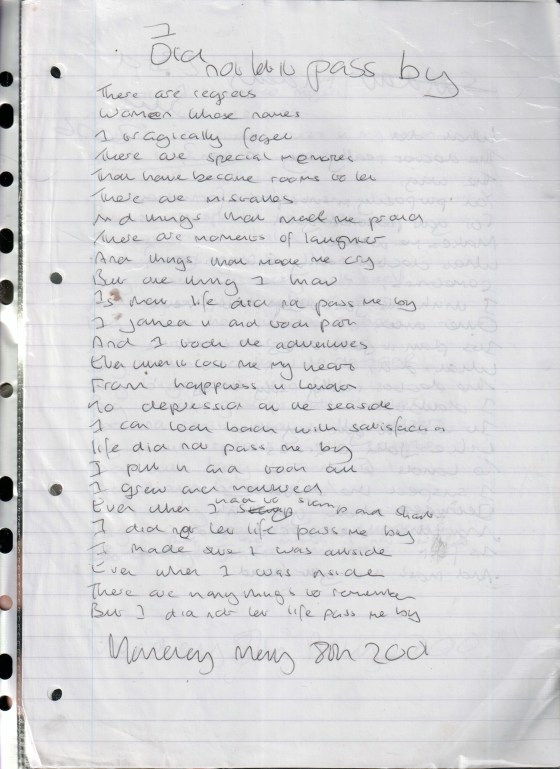 I
Did not let it pass by
There are regrets
Women whose names
I tragically forget
There are special memories
That have became rooms to let
There are mistakes
And things that made me proud
There are moments of laughter
And things that made me cry
But one thing I know
Is that life did not pass me by
I joined in and took part
And I took the adventures
Even when it cost me my heart
From happiness in London
To depression on the seaside
I can look back with satisfaction
life did not pass me by
I put in and took out
I grew and matured
Even when I had to stomp and shout
I did not let life pass me by
I made sure I was outside
Even when I was inside
There are many things to remember
But I did not let life pass me by
May 8th